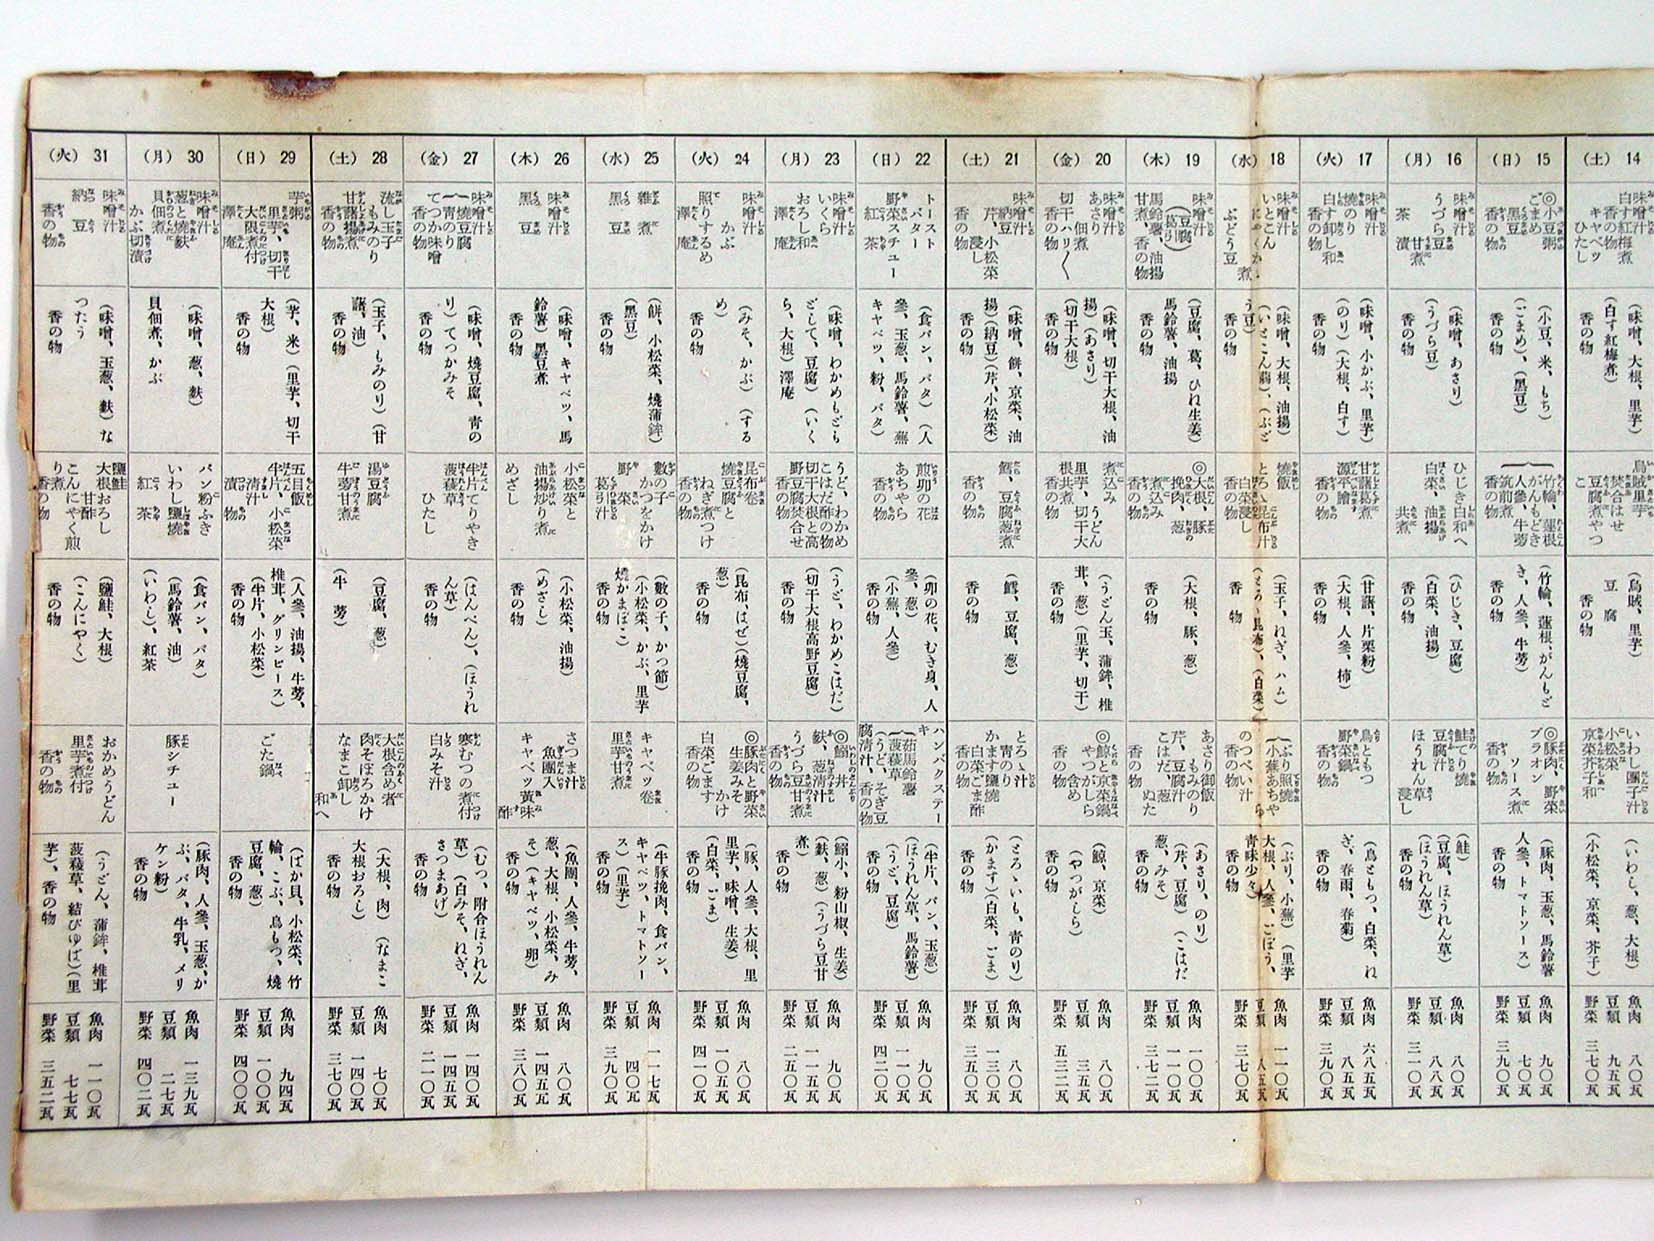 14 (土)
味噌汁
白す紅梅煮
キャベツ
ひたし
香の物
(味噌、大根、里芋)
(白す紅梅煮)
香の物
烏賊里芋
焚合はせ
豆腐煮やつ
こ
(烏賊、里芋)
豆腐
香の物
いわし團子汁
小松菜
京菜芥子和
(いわし、葱、大根)
(小松菜、京菜、芥子)
魚肉 八〇瓦
豆類 九五瓦
野菜 三七〇瓦
15 (日)
◎小豆粥
ごまめ
黒豆
香の物
(小豆、米、もち)
(ごまめ)、(黒豆)
香の物
竹輪、蓮根
がんもどき
人參、牛蒡
筑前煮
香の物
(竹輪、蓮根、がんもど
き、人參、牛蒡)
香の物
◎豚肉、野菜
ブラオン
ソース煮
香の物
(豚肉、玉葱、馬鈴薯
人參、トマトソース)
香の物
魚肉 九〇瓦
豆類 七〇瓦
野菜 三九〇瓦
16 (月)
味噌汁
うづら豆
甘煮
茶
(味噌、あさり)
(うづら豆)
香の物
ひじき白和へ
白菜、油揚
共煮
(ひじき、豆腐)
(白菜、油揚)
香の物
鮭てり燒
豆腐汁
ほうれん草
浸し
(鮭)
(豆腐、ほうれん草)
(ほうれん草)
魚肉 八〇瓦
豆類 八八瓦
野菜 三一〇瓦
17 (火)
味噌汁
燒のり
白す卸し和
香の物
(味噌、小かぶ、里芋)
(のり)(大根、白す)
香の物
甘藷葛煮
源平膾
香の物
(甘藷、片栗粉)
(大根、人參、柿)
香の物
鳥ともつ
野菜鍋
香の物
(鳥ともつ、白菜、ね
ぎ、春雨、春菊)
香の物
魚肉 六八五瓦
豆類 八五瓦
野菜 三九〇瓦
18 (水)
味噌汁
いとこん
ぶどう豆
(味噌、大根、油揚)
う豆)
香の物
燒飯
とろゝ昆布汁
白菜浸し
香の物
(玉子、ねぎ、ハム)
(とろゝ昆布)、(白菜)
香 物
ぶり照燒
小蕪あちや
ら
のつぺい汁
(ぶり、小蕪)(里芋
大根、人參、ごぼう、
青味少々)
香の物
魚肉 一一〇瓦
豆類 八五瓦
野菜 三七〇瓦
19 (木)
味噌汁
(豆腐)
(葛引)
馬鈴薯、油揚
甘煮、香の物
(豆腐、葛、ひね生姜)
馬鈴薯、油揚
香の物
◎大根、豚
挽肉、葱
煮込み
香の物
(大根、豚、葱)
香の物
あさり御飯
もみのり
芹、豆腐汁
こはだ、葱
ぬた
香の物
(あさり、のり)
(芹、豆腐)(こはだ
葱、みそ)
香の物
魚肉 一〇〇瓦
豆類 一〇〇瓦
野菜 三七二瓦
20 (金)
味噌汁
あさり
佃煮
切干ハリ〱
香の物
(味噌、切干大根、油
揚)(あさり)
(切干大根)
香の物
煮込み
うどん
里芋、切干大
根共煮
香の物
(うどん玉、蒲鉾、椎
茸、葱)(里芋、切干)
香の物
◎鯨と京菜鍋
やつがしら
含め
香の物
(鯨、京菜)
(やつがしら)
香の物
魚肉 八〇瓦
豆類 三五瓦
野菜 五三二瓦
21 (土)
味噌汁
納豆
芹、小松菜
浸し
香の物
(味噌、餅、京菜、油
揚)(納豆)(芹、小松菜)
香の物
鱈、豆腐葱煮
香の物
(鱈、豆腐、葱)
香の物
とろゝ汁
靑のり
かます鹽燒
白菜ごま酢
香の物
(とろゝいも、青のり)
(かます)(白菜、ごま)
香の物
魚肉 八〇瓦
豆類 一三〇瓦
野菜 三五〇瓦
22 (日)
トースト
バター
野菜スチュー
紅茶
(食パン、バタ)(人
參、玉葱、馬鈴薯、蕪
キヤベツ、粉、バタ)
煎卯の花
あちやら
香の物
(卯の花、むき身、人
參、葱)
(小蕪、人參)
香の物
ハンバクステー
キ
茹馬鈴薯
菠薐草
(うど、そぎ豆
腐淸汁、香の物
(牛片、パン、玉葱)
(ほうれん草、馬鈴薯)
(うど、豆腐)
香の物
魚肉 九〇瓦
豆類 一一〇瓦
野菜 四二〇瓦
23 (月)
味噌汁
いくら
おろし和
澤庵
(味噌、わかめもども
どして、豆腐)(いく
ら、大根)澤庵
うど、わかめ
こはだ酢の物
切干大根と高
野豆腐焚合せ
(うど、わかめこはだ)
(切干大根高野豆腐)
香の物
◎鰯丼
麩、葱淸汁
うづら豆甘煮
香の物
(鰯小、粉山椒、生姜)
(麩、葱)(うづら豆甘
煮)
香の物
魚肉 九〇瓦
豆類 一一五瓦
野菜 二五〇瓦
24 (火)
味噌汁
かぶ
照りするめ
澤庵
(みそ、かぶ)(する
め)
香の物
昆布卷
燒豆腐と
ねぎ煮つけ
香の物
(昆布、はぜ)(燒豆腐、
葱)
香の物
◎豚肉と野菜
生姜みそ
かけ
白菜ごます
香の物
(豚、人參、大根、里
里芋、味噌、生姜)
(白菜、ごま)
香の物
魚肉 八〇瓦
豆類 一〇五瓦
野菜 四一〇瓦
25 (水)
雜煮
黒豆
(餅、小松菜、燒蒲鉾)
(黒豆)
香の物
數の子
かつをかけ
野菜
葛引汁
香の物
(數の子、かつ節)
(小松菜、かぶ、里芋
燒かまぼこ)
香の物
キャベツ卷
里芋甘煮
香の物
(牛豚挽肉、食パン、
キヤベツ、トマトソー
ス)(里芋)
香の物
魚肉 一一七瓦
豆類 四〇瓦
野菜 三九〇瓦
26 (木)
味噌汁
黒豆
(味噌、キヤベツ、馬
鈴薯)黒豆煮
香の物
小松菜と
油揚炒り煮
めざし
(小松菜、油揚)
(めざし)
香の物
さつま汁
魚團入
キャベツ黃味
酢
(魚團、人參、牛蒡、
葱、大根、小松菜、み
そ)(キャベツ、卵)
香の物
魚肉 八〇瓦
豆類 一四五瓦
野菜 三八〇瓦
27 (金)
味噌汁
燒豆腐
靑のり
てつか味噌
香の物
(味噌、燒豆腐、青の
り)てつかみそ
香の物
半片てりやき
菠薐草
ひたし
(はんぺん)、(ほうれ
ん草)
香の物
寒むつの煮付
白みそ汁
(むつ、附合ほうれん
草)(白みそ、ねぎ、
さつまあげ)
香の物
魚肉 一四〇瓦
豆類 一四五瓦
野菜 二一〇瓦
28 (土)
流し玉子
もみのり
甘藷揚煮
香の物
(玉子、もみのり)(甘
藷、油)
香の物
湯豆腐
牛蒡甘煮
(豆腐、葱)
(牛蒡)
大根含め煮
肉そぼろかけ
なまこ卸し
和へ
(大根、肉)(なまこ
大根おろし)
香の物
魚肉 七〇瓦
豆類 一四〇瓦
野菜 三七〇瓦
29 (日)
芋粥
里芋、切干
大根煮付
澤庵
(芋、米)(里芋、切干
大根)
香の物
五目飯
半片、小松菜
淸汁
漬物
(人參、油揚、牛蒡、
椎茸、グリンピース)
(半片、小松菜)
香の物
ごた鍋
(ばか貝、小松菜、竹
輪、こぶ、鳥もつ、燒
豆腐、葱)
香の物
魚肉 九四瓦
豆類 一〇〇瓦
野菜 四〇〇瓦
30 (月)
味噌汁
葱と燒麩
貝佃煮
かぶ切漬
(味噌、葱、麩)
貝佃煮、かぶ
パン粉ふき
いわし鹽燒
紅茶
(食パン、バタ)
(馬鈴薯、油)
(いわし)、紅茶
豚シチュー
(豚肉、人參、玉葱、か
ぶ、バタ、牛乳、メリ
ケン粉)
香の物
魚肉 一三九瓦
豆類 二七瓦
野菜 四〇二瓦
31 (火)
味噌汁
納豆
香の物
(味噌、玉葱、麩)な
つたう
香の物
鹽鮭
大根おろし
甘酢
こんにやく煎
り煮
香の物
(鹽鮭、大根)
(こんにやく)
香の物
おかめうどん
里芋煮付
香の物
(うどん、蒲鉾、椎茸
菠薐草、結びゆば)(里
芋)、香の物
魚肉 一一〇瓦
豆類 七七瓦
野菜 三五二瓦